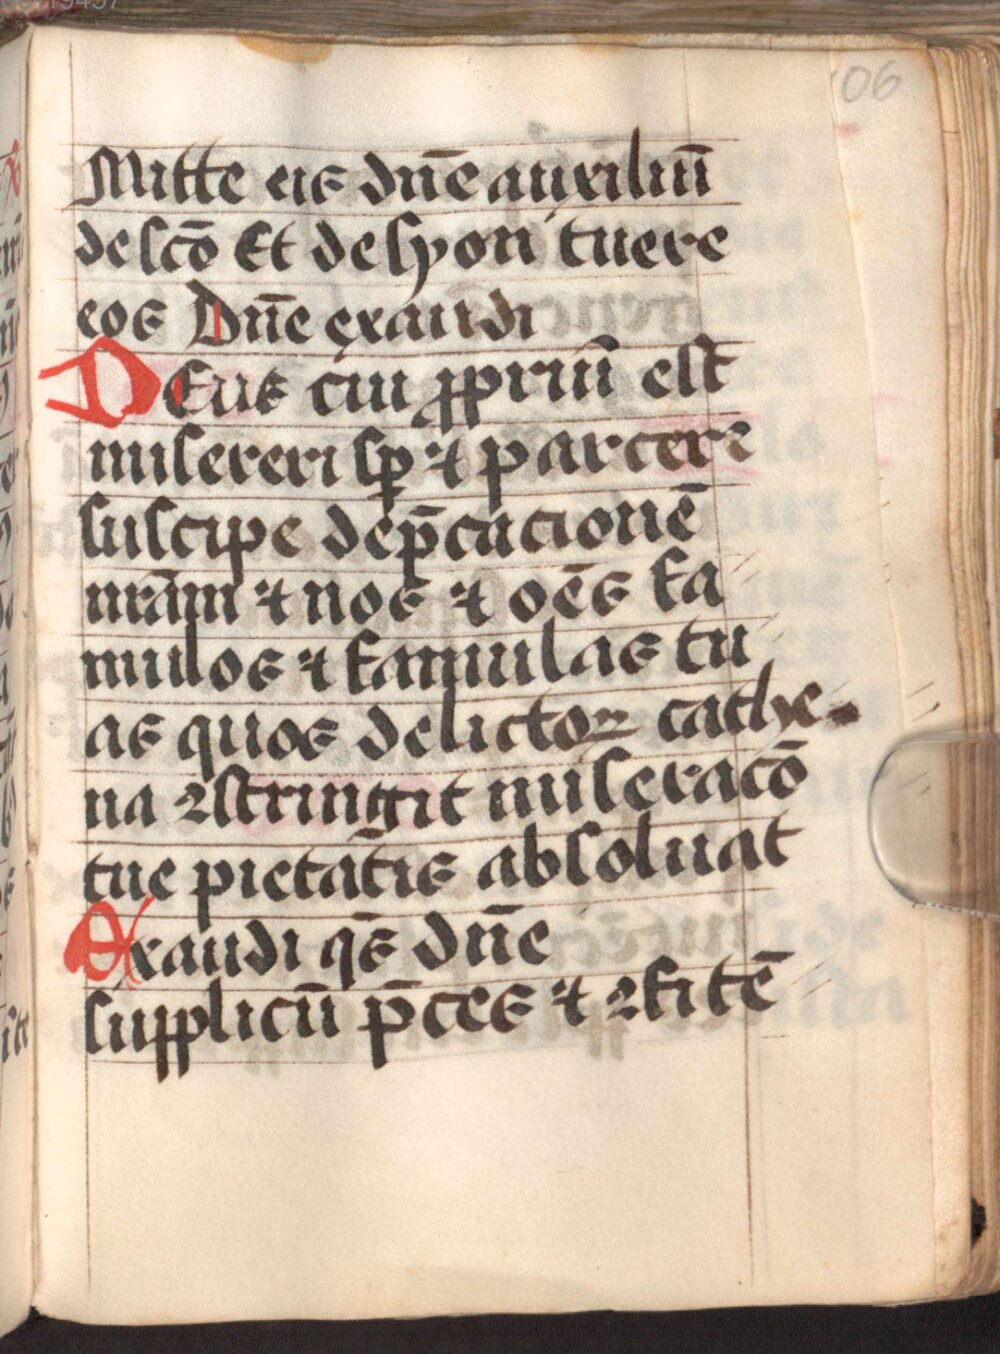 06
Mitte eis dn̄e auxiliū
de scō Et de syon tuere
eos Dn̄e exaudi
DEus cui ꝓpriū est
misereri sꝑ ⁊ parcere
suscipe dep̄cacionē
nr̄am ⁊ nos ⁊ oēs fa
mulos ⁊ famulas tu
as quos delictoꝝ cathe
na ꝯstringit miseracō
tue pietatis absoluat
Exaudi qs̄ dn̄e
supplicū p̄ces ⁊ ꝯfitē